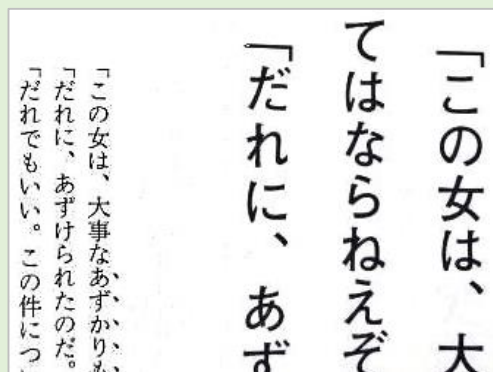 「この女は、大
てはならねえぞ
「だれに、あず
「この女は、大事なあずかりも
「だれに、あずけられたのだ。
「だれでもいい。この件につ